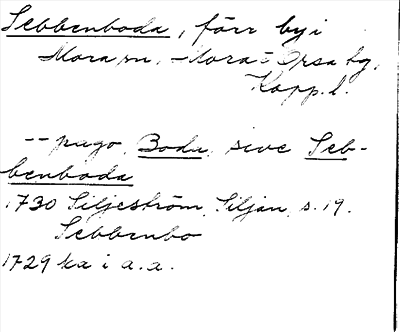 Sebbenboda, förr by i
Mora sn, Mora o Orsa tg,
Kopp. l.
-- pago Boda sive Seb-
benboda
1730 Siljeström, Siljan, s. 19.
Sebbenbo
1729 ka i a.a.